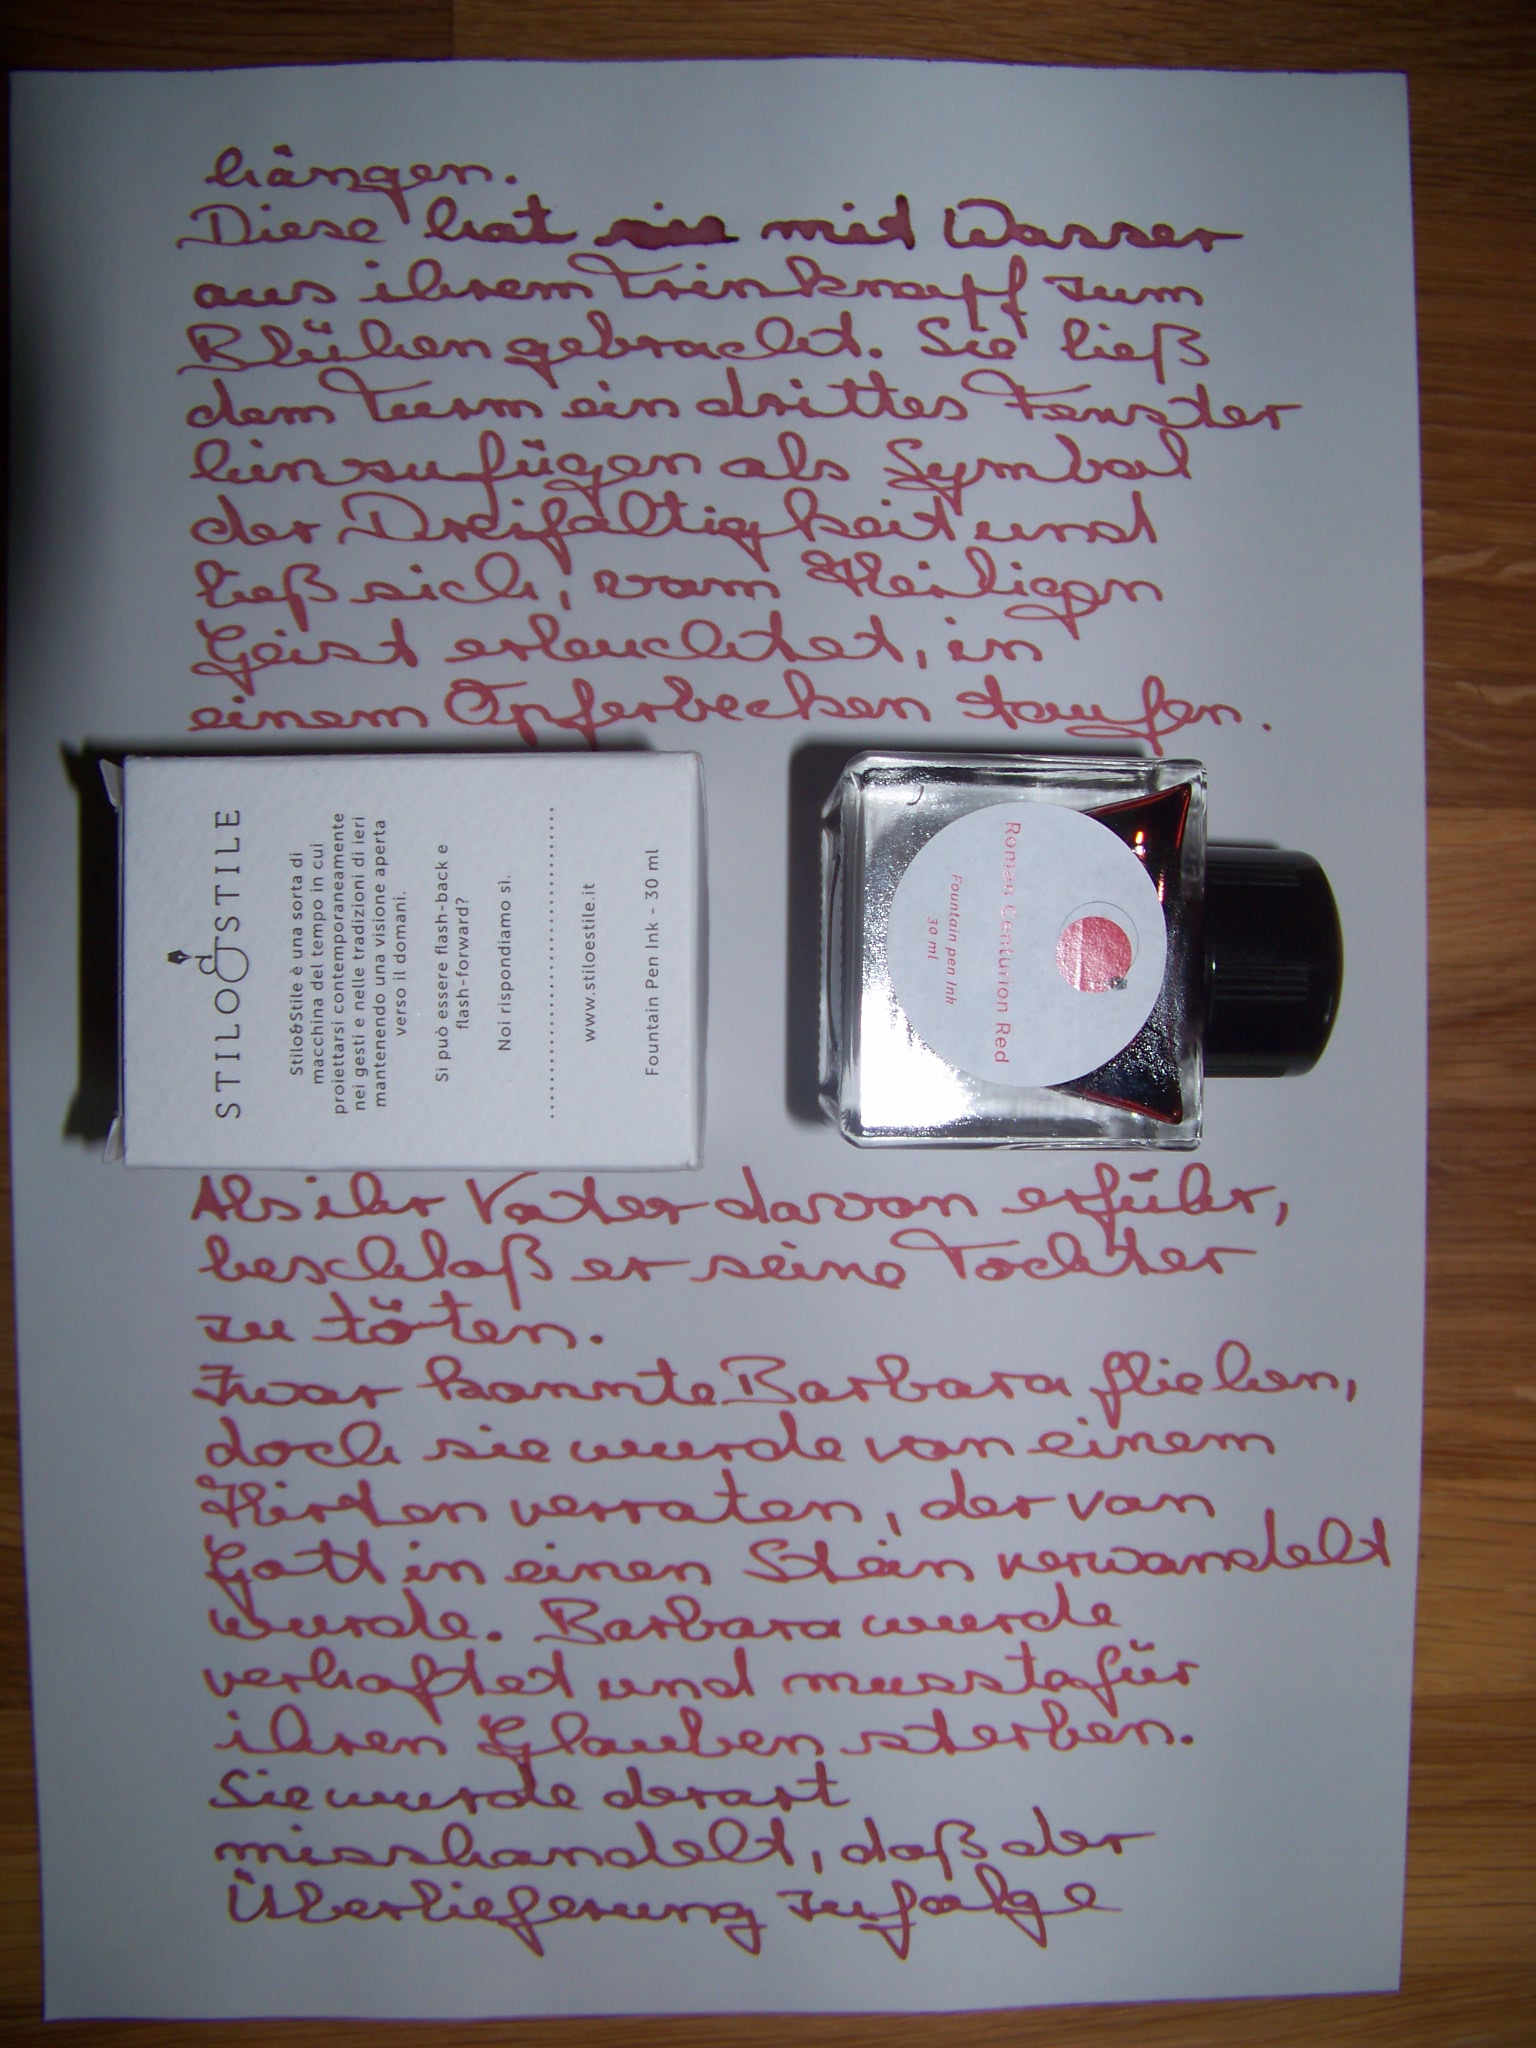 hängen.
Diese hat mit Wasser
aus ihrem Trinknapf zum
Blühen gebracht. Sie ließ
dem Turm ein drittes Fenster
hinzufügen als Symbol
der Dreifaltigkeit und
ließ sich, vom Heiligen
Geist erleuchtet, in
einem Opferbecken taufen.
STILO&STILE
Stilo&Stile è una sorta di
macchina del tempo in cui
proiettarsi contemporaneamente
nei gesti e nelle tradizioni di ieri
mantenendo una visione aperta
verso il domani.
Si può essere flash-back e
flash-forward?
Noi rispondiamo sì.
www.stiloestile.it
Fountain Pen Ink - 30 ml
Roman Centurion Red
Fountain pen Ink
30 ml
Als ihr Vater davon erfuhr,
beschloß er seine Tochter
zu töten.
Zwar konnte Barbara fliehen,
doch sie wurde von einem
Hirten verraten, der von
Gott in einen Stein verwandelt
wurde. Barbara wurde
verhaftet und musste für
ihren Glauben sterben.
Sie wurde derart
misshandelt, daß der
Überlieferung zufolge